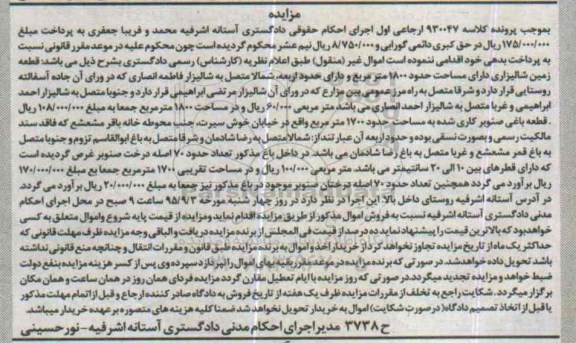 مزایده
بموجب پرونده کلاسه ۹۳۰۰۴۷ ارجاعی اول اجرای احکام حقوقی دادگستری آستانه اشرفیه محمد و فریبا جعفری به پرداخت مبلغ
۱۷۵/۰۰۰/۰۰۰ ریال در حق کبری دائمی گورابی و ۸/۷۵۰/۰۰۰ ریال نیم عشر محکوم گردیده است چون محکوم علیه در موعد مقرر قانونی نسبت
به پرداخت بدهی خود اقدامی ننموده است اموال غیر (منقول) طبق اعلام نظریه (کارشناس) رسمی دادگستری بشرح ذیل می باشد: قطعه
زمین شالیزاری دارای مساحت حدود ۱۸۰۰ متر مربع و دارای حدود اربعه، شمالا متصل به شالیزار فاطمه انصاری که در ورای آن جاده آسفالته
روستایی قرار دارد و شرقا متصل به راه مرز عمومی بین مزارع که در ورای آن شالیزار مرتضی ابراهیمی قرار دارد و جنوبا متصل به شالیزار احمد
ابراهیمی و غربا متصل به شالیزار احمد انصاری می باشد. متر مربعی ۶۰/۰۰۰ ریال و در مساحت ۱۸۰۰ متر مربع جمعا به مبلغ ۱۰۸/۰۰۰/۰۰۰ ریال
. قطعه باغی صنوبر کاری شده به مساحت حدود ۱۷۰۰ متر مربع واقع در خیابان خوش سیرت، جنب محوطه خانه باقر مشعشع که فاقد سند
مالکیت رسمی و بصورت نسقی بوده و حدود اربعه آن عبارتنداز: شمالا متصل به رضا شادمان و شرقا متصل به باغ ابوالقاسم تزوم و جنوبا متصل
به باغ قمر مشعشع و غربا متصل به باغ رضا شادمان می باشد. در داخل باغ مذکور تعداد حدود ۷۰ اصله درخت صنوبر غرس گردیده است
که دارای قطرهای بین ۱۰ الی ۳۰ سانتیمتر می باشد. متر مربعی ۱۰۰/۰۰۰ ریال و در مساحت تقریبی ۱۷۰۰ متر مربع جمعا بع مبلغ ۱۷۰/۰۰۰/۰۰۰
ریال برآورد می گردد همچنین تعداد حدود ۷۰ اصله درختان صنوبر موجود در باغ مذکور نیز جمعا به مبلغ ۲۰/۰۰۰/۰۰۰ ریال برآورد می گردد.
در آدرس آستانه اشرفیه روستای داخل بالا این اجرا در نظر دارد در روز چهار شنبه مورخه ۹۵/۹/۳ ساعت ۹ صبح در محل اجرای احکام
مدنی دادگستری آستانه اشرفیه نسبت به فروش اموال مذکور از طریق مزایده اقدام نماید و مزایده از قیمت پایه شروع و اموال متعلق به کسی
خواهد بود که بالاترین قیمت را پیشنهاد نماید ده درصد از قیمت فی المجلس از برنده مزایده دریافت و الباقی وجه مزایده ظرف مهلت قانونی که
حداکثر یک ماه از تاریخ مزایده تجاوز نخواهد کرد از خریدار اخذ و اموال به برنده مزایده طبق قانون و مقررات انتقال و چنانچه منع قانونی نداشته
باشد تحویل داده خواهد شد. در صورتی که برنده مزایده در موعد مقرر بقیه بهای اموال را نپردازد سپرده وی پس از کسر هزینه مزایده بنفع دولت
ضبط خواهد و مزایده تجدید میگردد. در صورتی که روز مزایده با ایام تعطیل مقارن گردد مزایده فردای همان روز در همان ساعت و همان مکان
برگزار میگردد. شکایت راجع به تخلف از مقررات مزایده ظرف یک هفته از تاریخ فروش به دادگاه صادر کننده ارجاع و قبل از اتمام مهلت مذکور
یا قبل از اتخاذ تصمیم دادگاه (در صورت شکایت) اموال به خریدار تحویل نخواهد شد ضمنا کلیه هزینه های متصوره بر عهده خریدار میباشد.
ح ۳۷۳۸ مدیر اجرای احکام مدنی دادگستری آستانه اشرفیه - نورحسینی